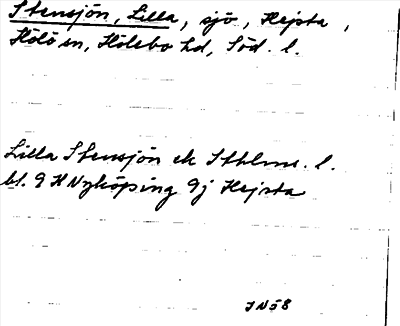 Stensjön, Lilla, sjö, Hejsta,
Hölö sn, Hölebo hd, Söd. l.
Lilla Stensjön ek Sthlms. l.
bl. 9 H Nyköping 9j Hejsta